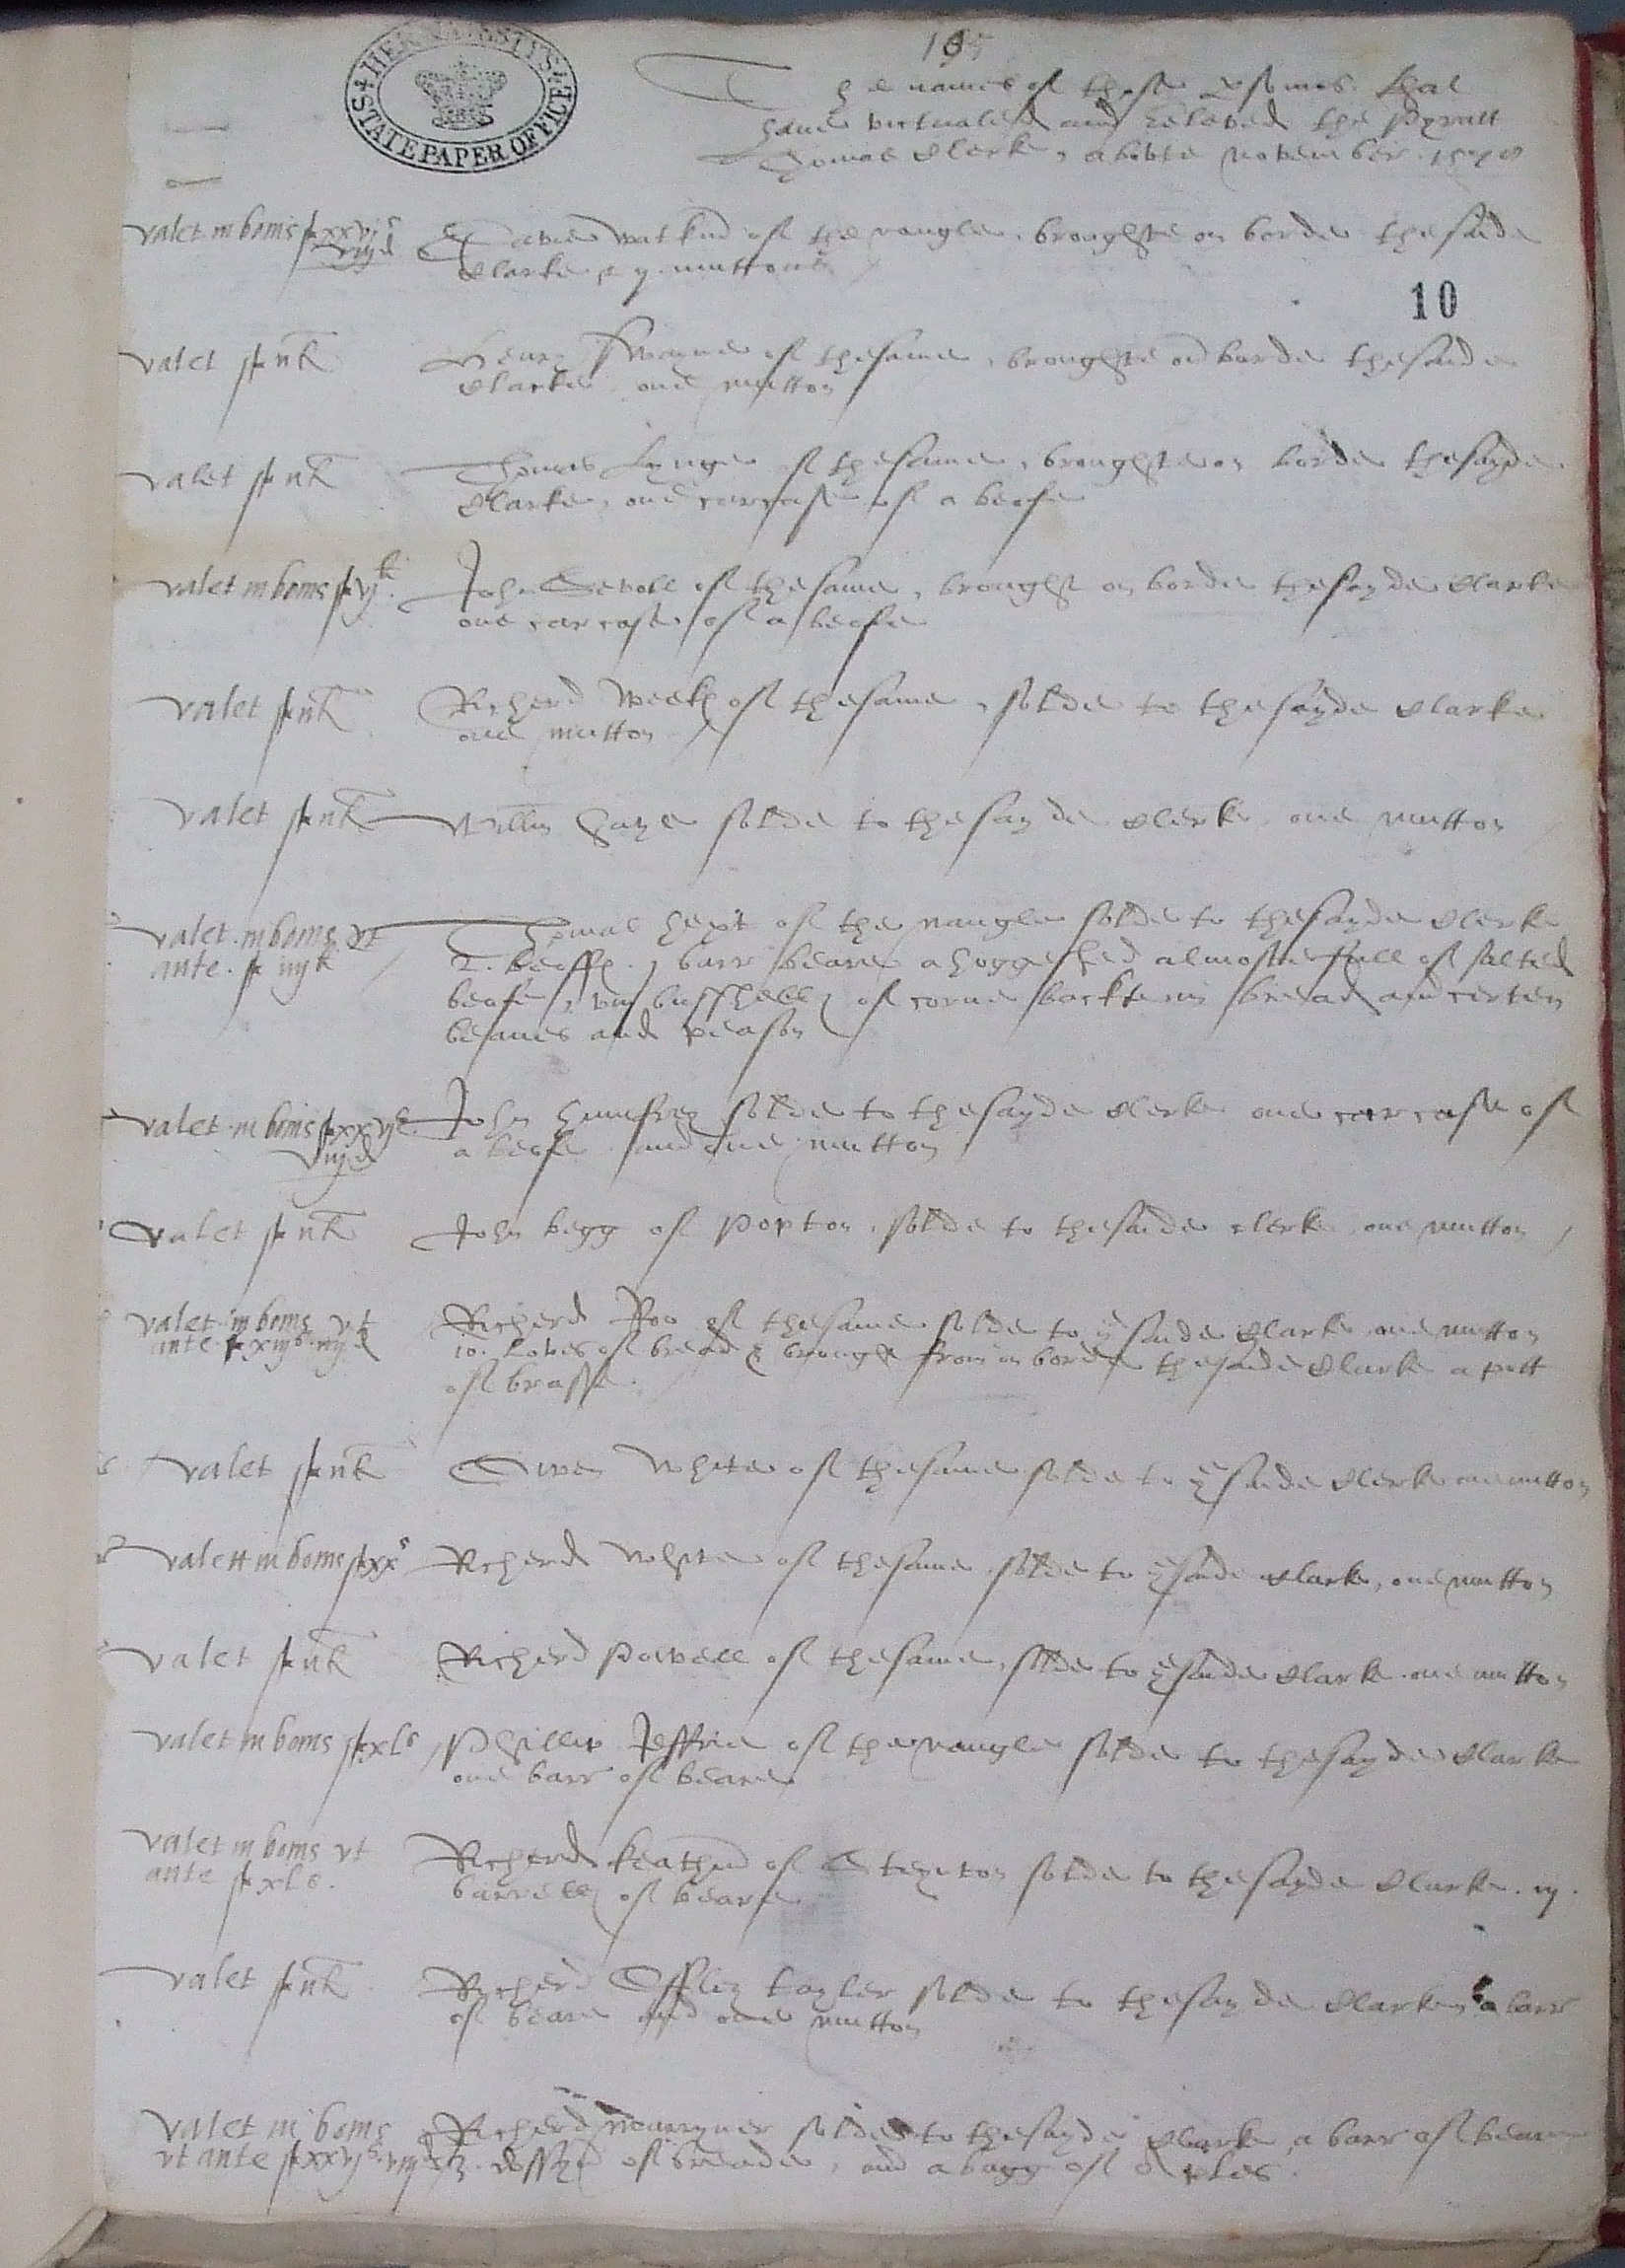 195
HER MAJESTY'S STATE PAPER OFFICE
The names of those psonnes that
have victualed and releved the Pyratt
Thomas Clerke, aboute November 1578
valet in bonis p xxvjs viijd
Davie Watkin of the nangle, broughte on borde the saide
Clarke, ij muttons
10
valet p nll
Henry of thesame, broughte on borde thesaide
Clarke one mutton
valet p nll
Thomas Lynge of thesame, broughte on borde thesayde
Clarke, one carcase of a beofe
valet in bonis p vjli
John of thesame, brought on borde thesayde Clarke
one carcase of a beofe
valet p nll
Richerd of thesame, solde to thesayde Clarke
one mutton
valet p nll
Willm haye solde to thesayde Clerke one mutton
valet in bonis vt
ante p iijli
Thomas hext of the nangle solde to thesayde Clerke
2. beoffes j barr beare a hoggeshed almoste full of salted
beofe, viij busshells of corne backte in bread and certen
beanes and peason
valet in bonis p xxvjs
viijd
John humfrey solde to thesayde Clerke one carcase of
a beofe and one mutton
valet p nll
John begg of popton, solde to thesaide clerke one mutton
valet in bonis vt
ante p xiijs iiijd
Richerd Roo of thesame solde to ye saide Clarke one mutton
10. Loves of bread & brought from on borde thesaide Clarke a pott
of brasse.
valet p nll
Owen White of thesame solde to ye saide Clerke one mutton
valett in bonis p xxs
Richerd White of thesame solde to ye saide Clarke, one mutton
valet p nll
Richerd Powell of thesame, solde to ye saide Clarke one mutton
valet in bonis p xls
Phillip Jeffrie of the nangle solde to thesayde Clarke
one barr of beare
valet in bonis vt
ante p xls.
Richerd of Steynton solde to thesayde Clarke. ij.
barrells of beare
valet p nll
Richerd tayler solde to thesayde Clarke a barr
of beare and one mutton
valet in bonis
vt ante p xxvjs viijd
Richerd Marryner solde to thesayde Clarke a barr of beare
dossyn of breade, and a bagg of